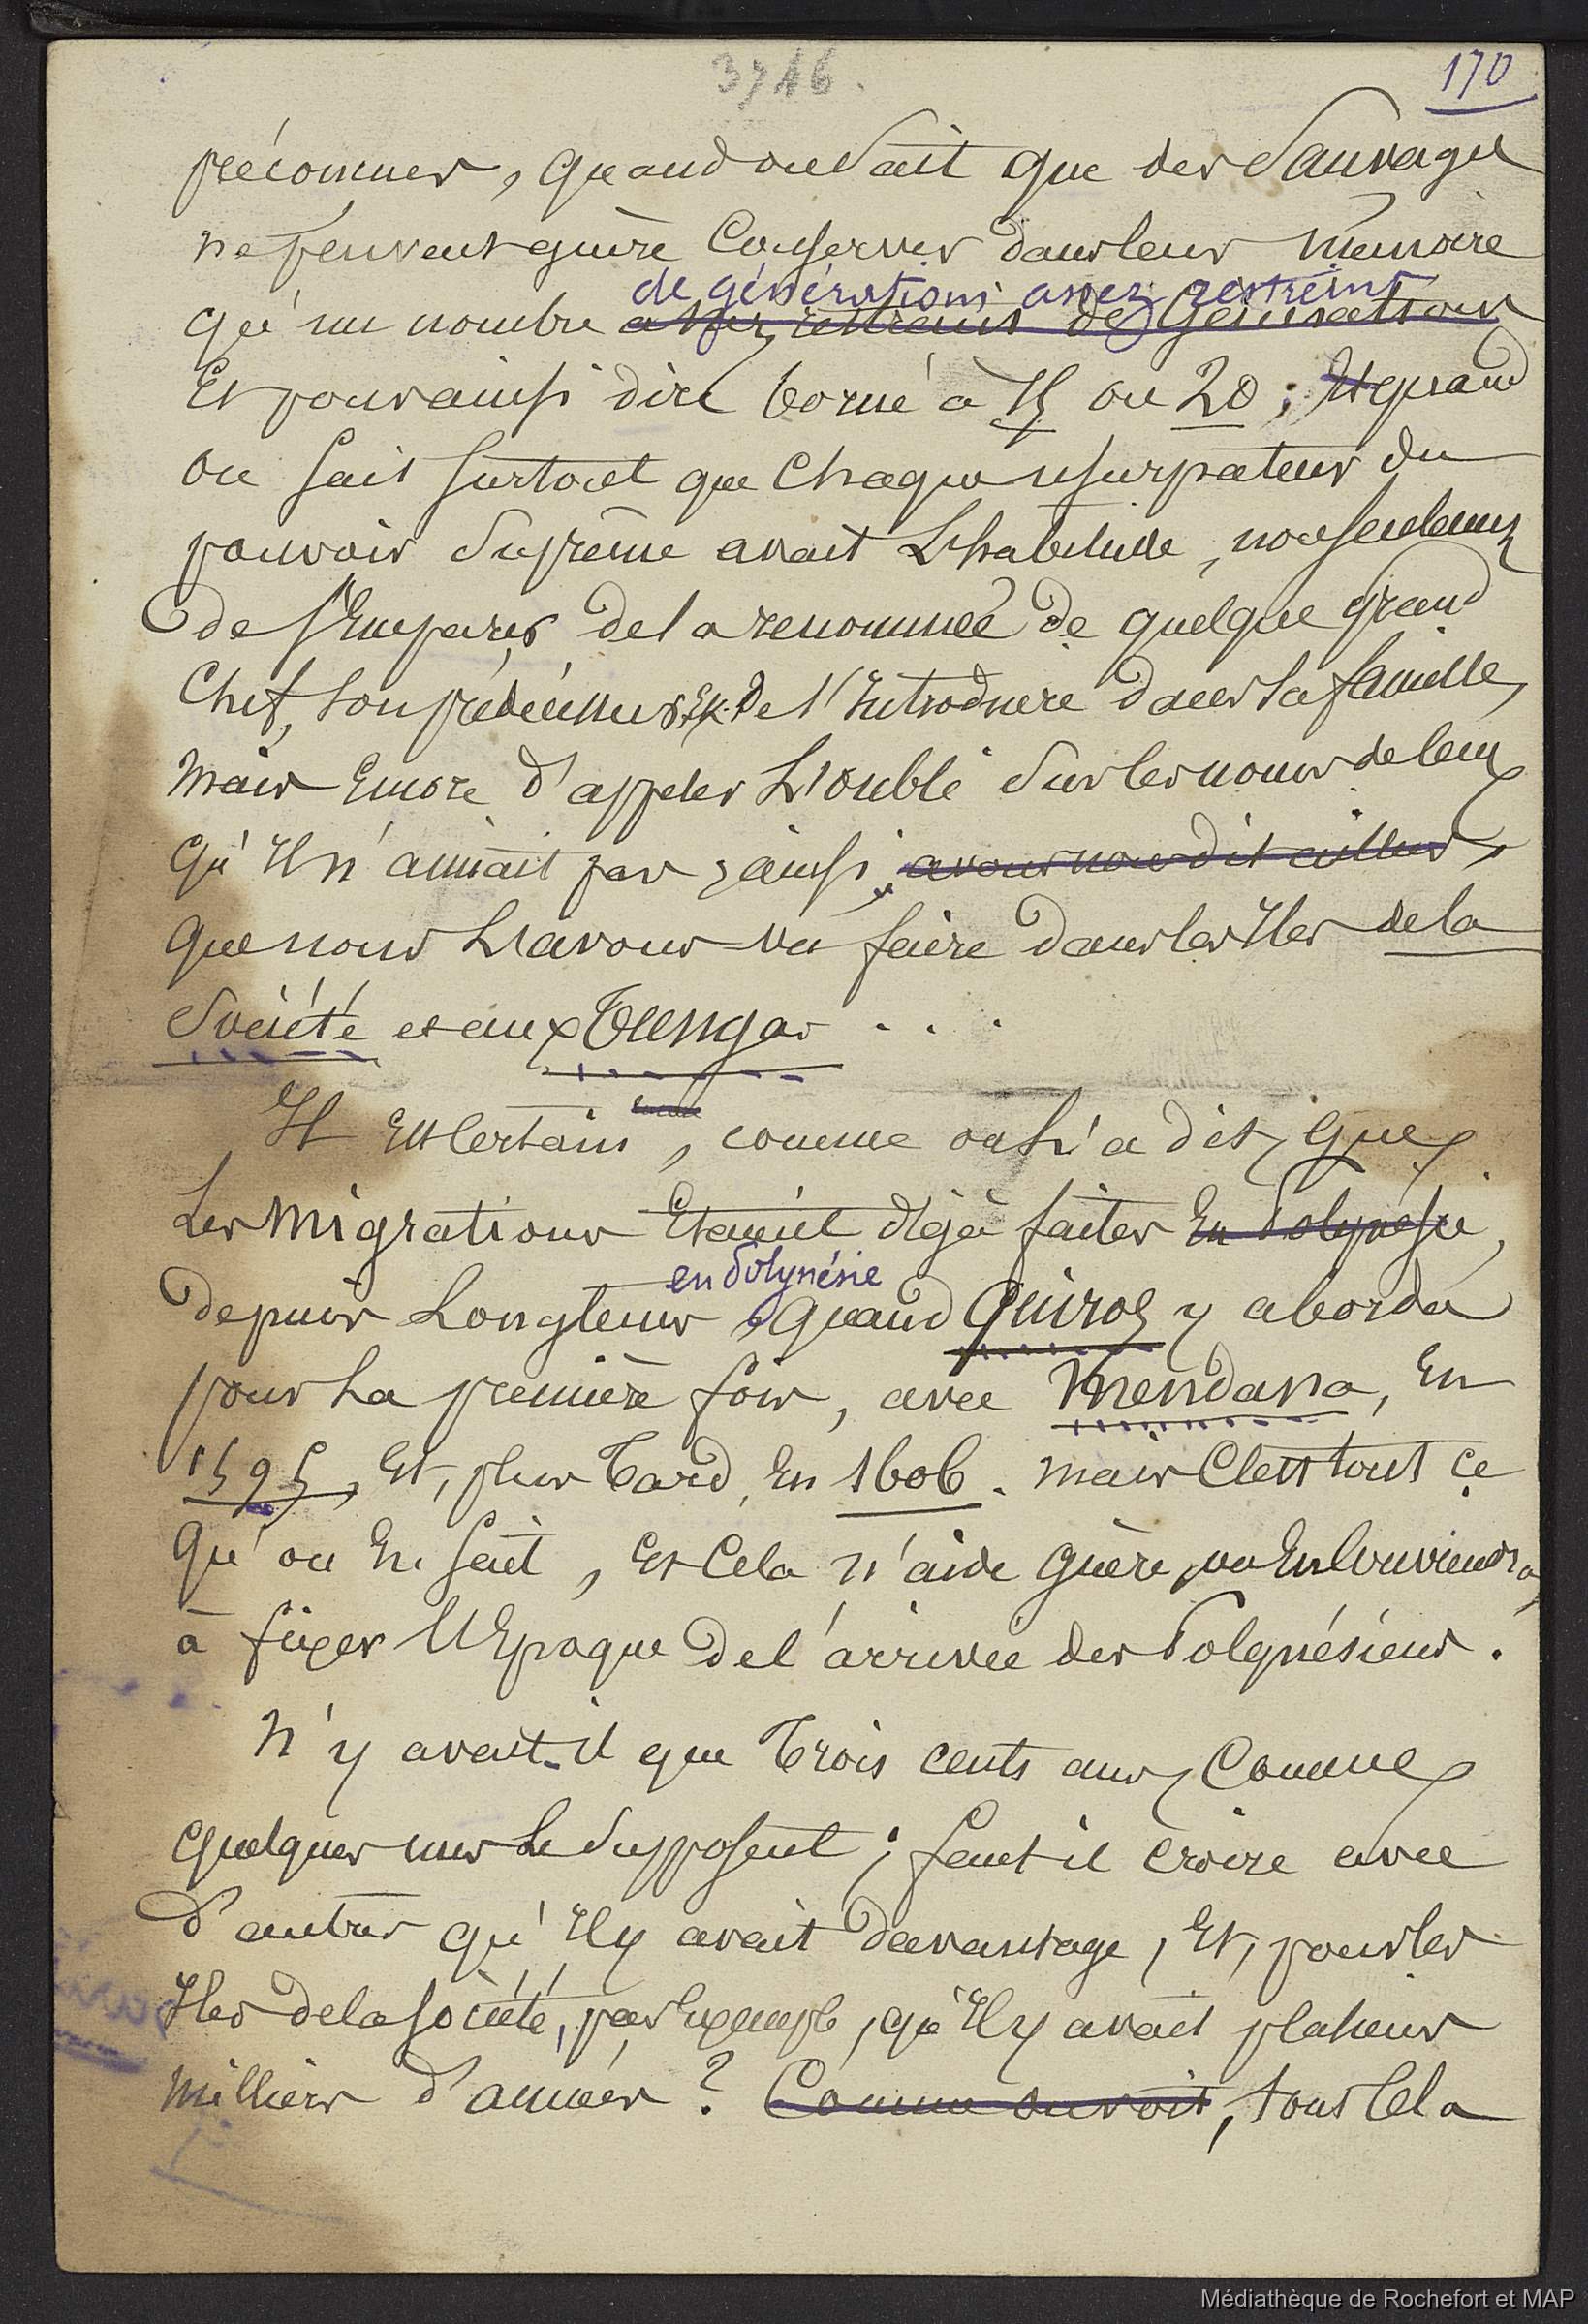 3746.
170
préconnues, quand on sait que des Sauvages
ne peuvent guère Conserver dans leur mémoire
de générations assez restreint
qu'un nombre assez restreint de Générations
Et pour ainsi dire borné à 15 ou 20 ; Et quand
on sait surtout que Chaque usurpateur du
pouvoir Suprême avait L'habitude, non seulement
de s'Emparer de la renommée de quelque grand
Chef, son prédécesseur, Et de l'Introduire dans sa famille,
mais Encore d'appeler L'oubli Sur les noms de ceux
qu'Il n'aimait pas ; ainsi, avons nous dit ailleurs,
que nous L'avons vu faire dans les Iles de la
Société et aux Tunga ....
Il Est Certain, comme on L'a dit, que
Les migrations Etaient déjà faites En Polynésie,
en Polynésie
depuis Longtems, quand Quiros y aborda
pour La première fois, avec Mendana, En
1595, Et, plus Tard, En 1606. mais C'est tout ce
qu'on En sait, Et Cela n'aide guère, on En Conviendra,
à fixer l'Epoque de l'arrivée des Polynésiens.
N'y avait-il que Trois cents ans, Comme
quelques uns Le Supposent ; faut-il croire avec
d'autres qu'Il y avait davantage, Et, pour les
Iles de la Société, par Exemple, qu'Il y avait plusieurs
milliers d'années ? Comme on voit, tout Cela
Médiathèque de Rochefort et MAP